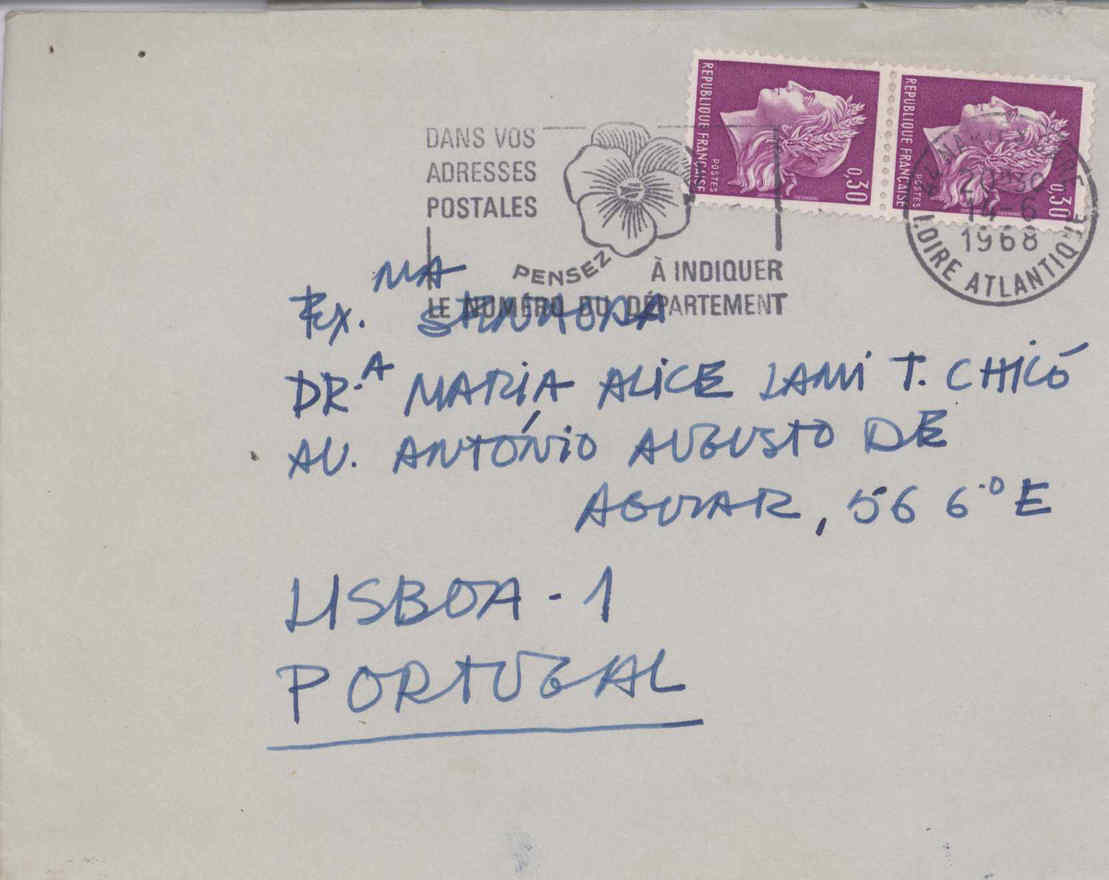 REPUBLIQUE FRANÇAISE
POSTES
0,30
REPUBLIQUE FRANÇAISE
POSTES
0,30
20H30
14-6
1968
LOIRE ATLANTIQUE
DANS VOS
ADRESSES
POSTALES
PENSEZ
À INDIQUER
LE NUMÉRO DU DÉPARTEMENT
EX.MA SENHORA
DR.A MARIA ALICE LAMI T. CHICÓ
AV. ANTÓNIO AUGUSTO DE
AGUIAR, 56 6.º E
LISBOA - 1
PORTUGAL